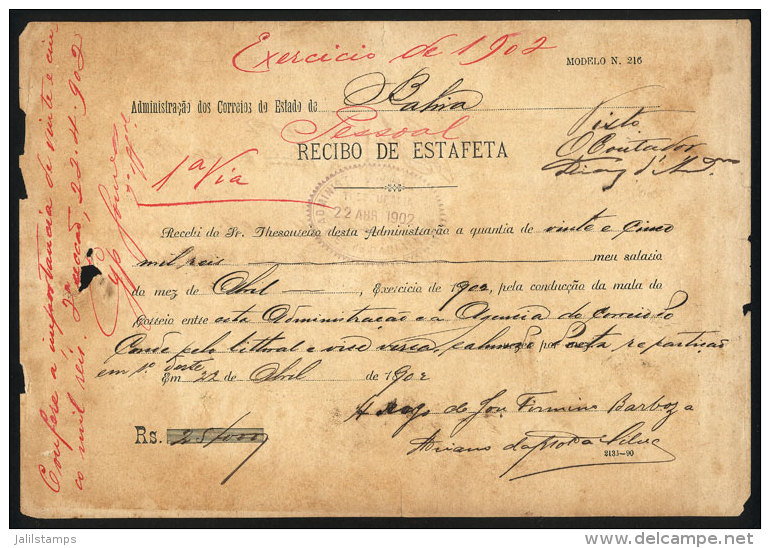 Exercicio de 1902
MODELO N. 216
Administração dos Correios do Estado da Bahia
Pessoal
Visto
O Contador
RECIBO DE ESTAFETA
1ª Via
22 ABR 1902
Recebi do Sr. Thesoureiro desta Administração a quantia de vinte e cinco
mil reis meu salario
do mez de Abril, Exercicio de 1902, pela conducção da mala do
Correio entre esta Administração e a Agencia do correio do
Conde pelo littoral e vice versa, por esta repartição
em 1º deste
Em 22 de Abril de 1902
A rogo de José Firmino Barboza
Rs. 25$000
da Motta Silva
2135-90
Confere a importancia de vinte e cin
co mil reis. 22-4-902
jalilstamps
delcampe.net